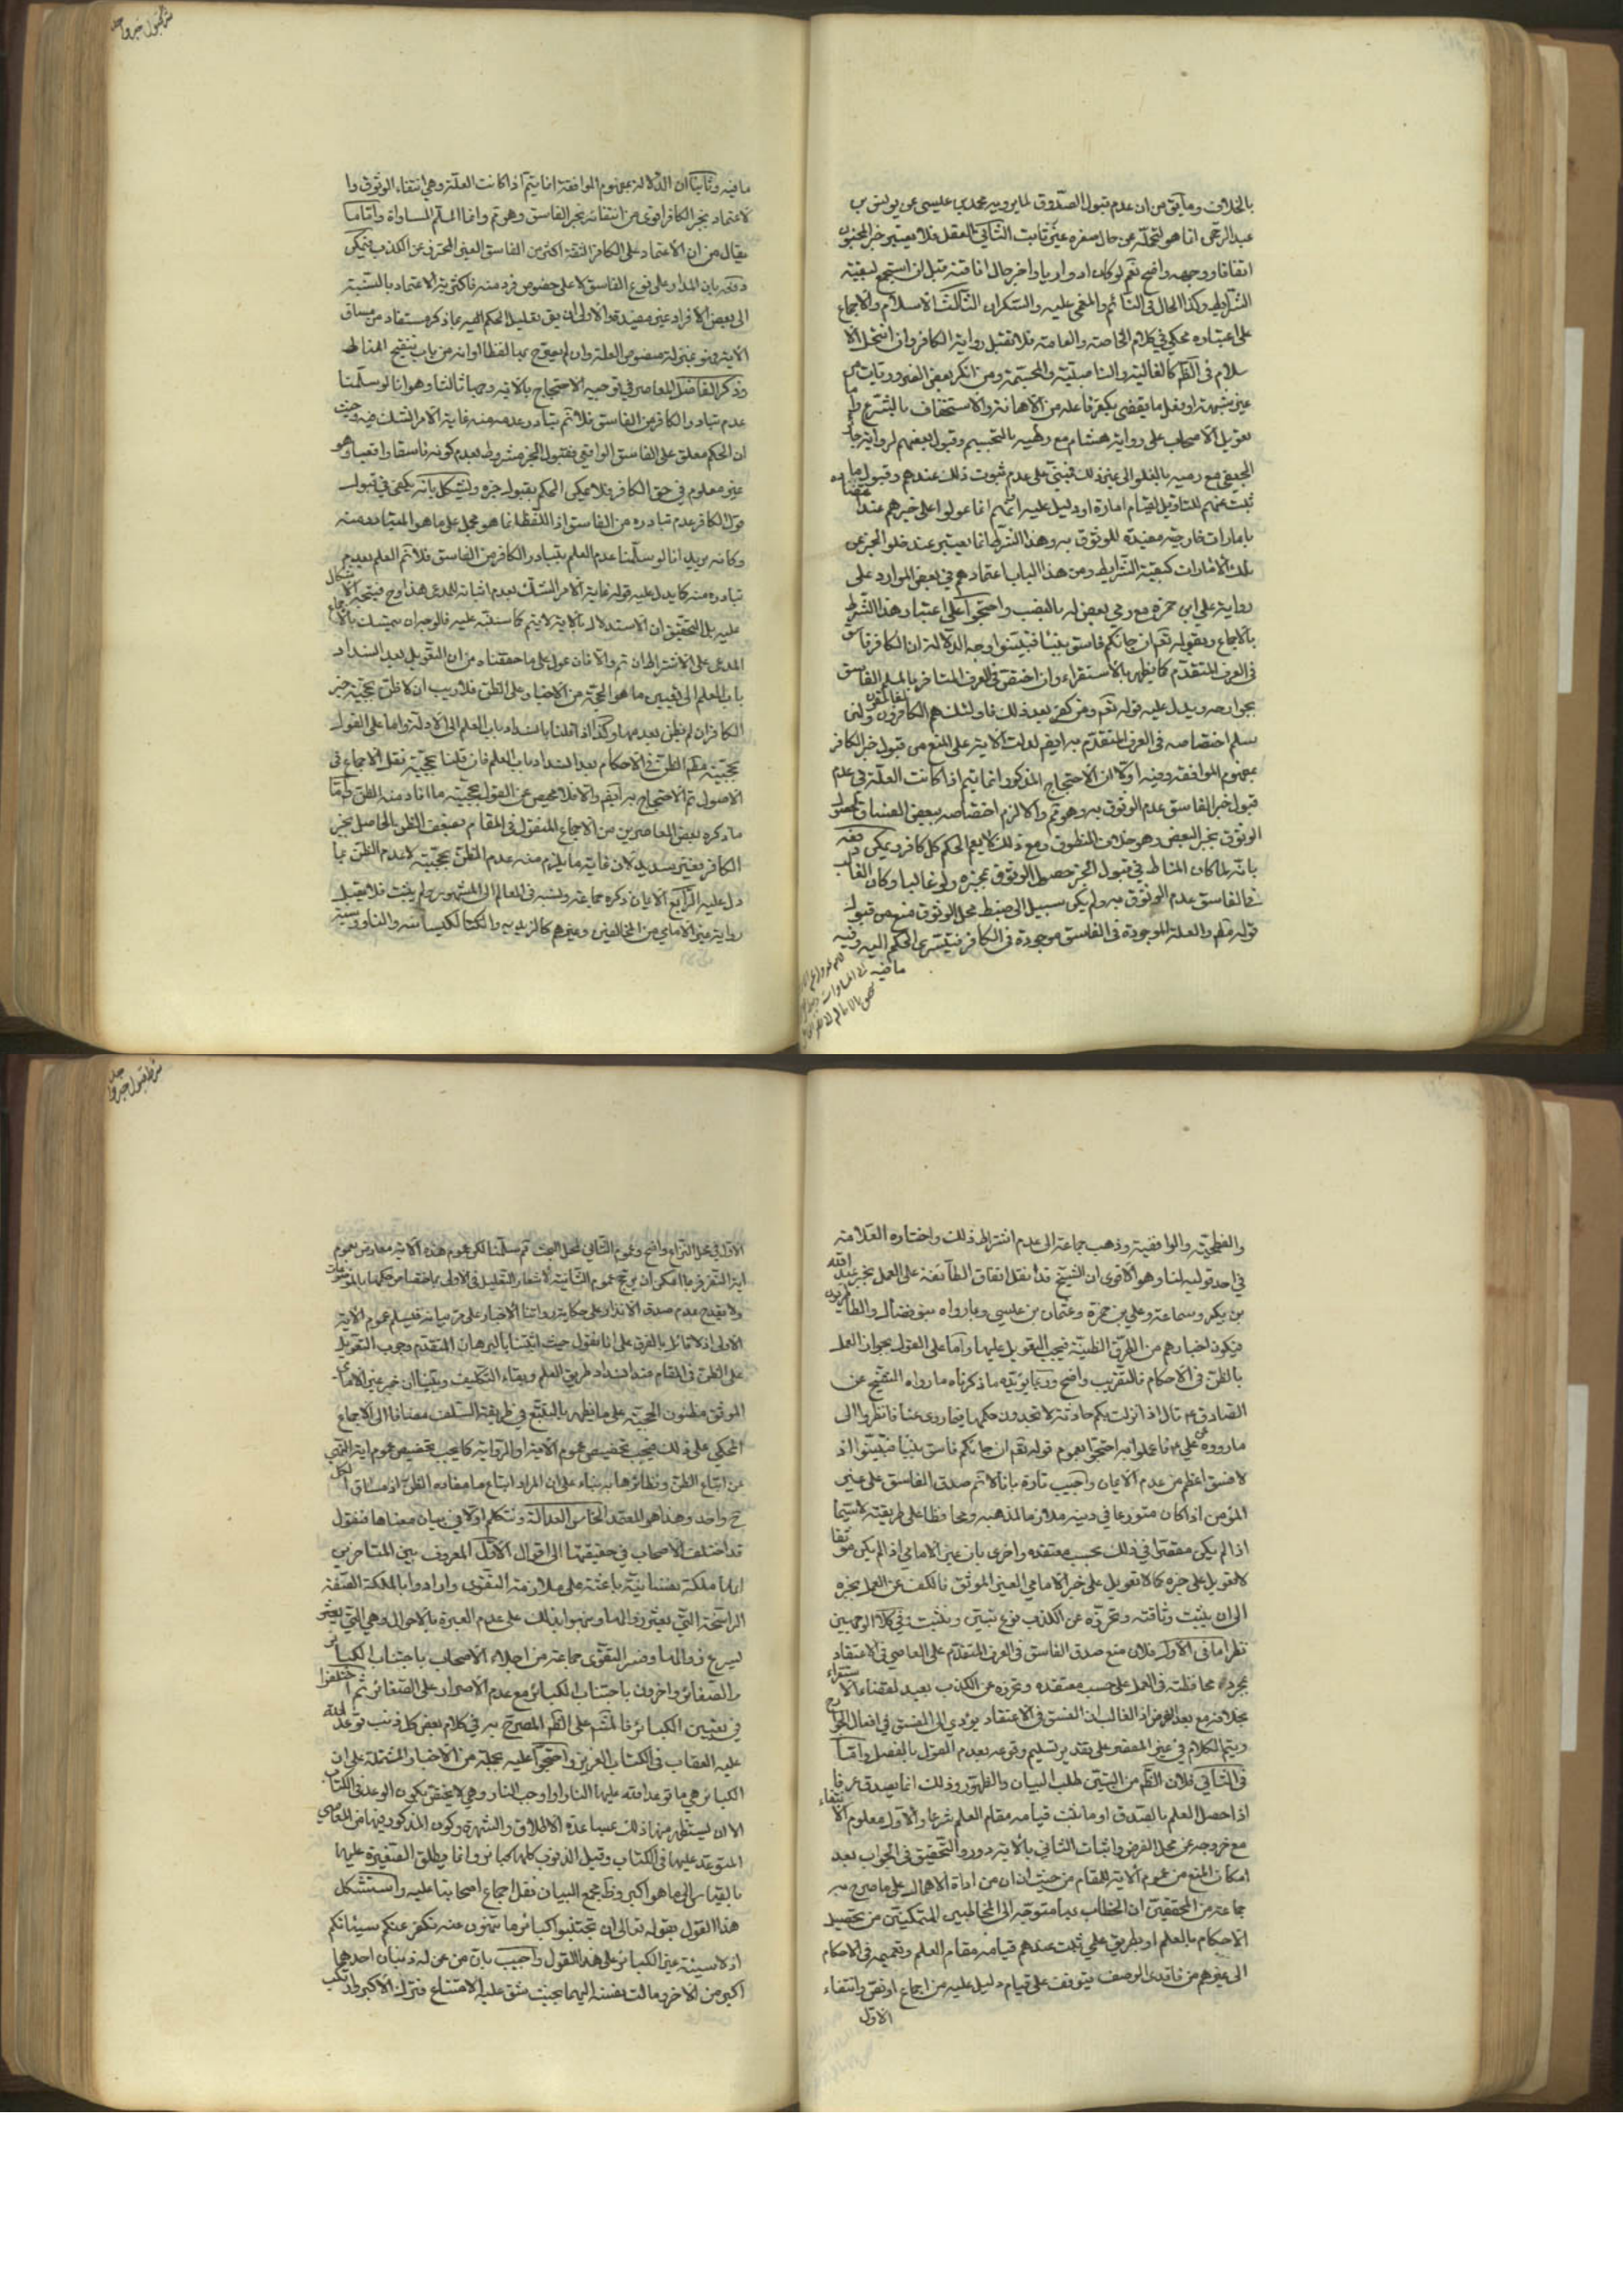 بالخلاف وما يق من ان عدم قبول الصدوق لما يرويه محمد بن عيسى عن يونس بن
عبد الرحمن انما هو لتحمله عن حال صغره غير ثابت الثاني العقل فلا يعتبر خبر المجنون
اتفاقا ووجهه واضح نعم لو كان ادواريا واخبر حال افاقته قبل ان استجمع لبقية
الشرايط وكذا الحال في النائم والمغمى عليه والسكران الثالث الاسلام والاجماع
على اعتباره محكي في كلام الخاصة والعامة فلا تقبل رواية الكافر وان انتحل الا
سلام في الظم كالغالية والناصبية والمجسمة ومن انكر بعض الضروريات من
غير شبهة او فعل ما يقضي بكفر فاعله من الاهانة والاستخفاف بالشرع واما
تعويل الاصحاب على رواية هشام مع رميه بالتجسيم وقبول بعضهم لرواية جابر
الجعفي مع رميه بالغلو الى غير ذلك فمبني على عدم ثبوت ذلك عندهم وقبول ما
ثبت عنهم للتاويل لقيام امارة او دليل عليه او انهم انما عولوا على خبرهم عند اعتضاده
بامارات خارجية مفيدة للوثوق به وهذا الشرط انما يعتبر عند خلو الخبر عن
تلك الامارات كبقية الشرايط ومن هذا الباب اعتمادهم في بعض الموارد على
رواية علي بن ابي حمزة مع رمي بعض له بالنصب واحتجوا على اعتبار هذا الشرط
بالاجماع وبقوله تعم ان جائكم فاسق بنبا فتبينوا وجه الدلالة ان الكافر فاسق
في العرف المتقدم كما يظهر بالاستقراء وان اختص في العرف المتاخر بالمسلم الفاسق
بجوارحه ويدل عليه قوله تعم ومن كفر بعد ذلك فاولئك هم الفاسقون ولئن
سلم اختصاصه في العرف المتقدم به ايضم لدلت الاية على المنع من قبول خبر الكافر
بمفهوم الموافقة وفيه اولا ان الاحتجاج المذكور انما يتم اذا كانت العلة في عدم
قبول خبر الفاسق عدم الوثوق به وهو تم والا لزم اختصاصه ببعض الفساق لحصول
الوثوق بخبر البعض وهو خلاف المنطوق ومع ذلك لا يعم الحكم كل كافر ويمكن دفعه
بانه لما كان المناط في قبول الخبر حصول الوثوق بمخبره ولو غالبا وكان الغالب
في الفاسق عدم الوثوق به ولم يكن سبيل الى ضبط محل الوثوق منع من قبول
قوله مطم والعلة الموجودة في الفاسق موجودة في الكافر فيتسرى الحكم اليه وفيه
ما فيه
شرط قبول خبر واحد
ما فيه وثانيا ان الدلالة بمفهوم الموافقة انما يتم اذا كانت العلة وهي انتفاء الوثوق وا
لاعتماد بخبر الكافر اقوى من انتفائه بخبر الفاسق وهو تم وانما المسلم المساواة واما ما
يقال من ان الاعتماد على الكافر الثقة اكثر من الفاسق الغير المتحرز عن الكذب فيمكن
دفعه بان المدار على نوع الفاسق لا على خصوص فرد منه فاكثرية الاعتماد بالنسبة
الى بعض الافراد غير مفيدة والاولى ان يق تعليل الحكم فيه بما ذكر مستفاد من مساق
الاية فهو بمنزلة منصوص العلة وان لم يصرح بها لفظا او انه من باب تنقيح المناط
وذكر الفاضل المعاصر في توجيه الاحتجاج بالاية وجها ثالثا وهو انا لو سلمنا
عدم تبادر الكافر من الفاسق فلا تم تبادر عدمه منه غاية الامر الشك فيه وحيث
ان الحكم معلق على الفاسق الواقعي فقبول الخبر مشروط بعدم كونه فاسقا واقعيا وهو
غير معلوم في حق الكافر فلا يمكن الحكم بقبول خبره ويشكل بانه يكفي في قبول
قول الكافر عدم تبادره من الفاسق اذ اللفظ انما هو محمل على ما هو المتبادر منه
وكانه يريد انا لو سلمنا عدم العلم بتبادر الكافر من الفاسق فلا تم العلم بعدم
تبادره منه كما يدل عليه قوله غاية الامر الشك بعدم اثباته المدعى هذا وح فيتجه الاشكال
عليه بل التحقيق ان الاستدلال بالاية لا يتم كما سننبه عليه فالوجه ان يتمسك بالاجماع
المدعى على الاشتراط ان تم والا فان عول على ما حققناه من ان التعويل بعد انسداد
باب العلم الى تعيين ما هو الحجة من الاخبار على الظن فلا ريب ان لا ظن بحجية خبر
الكافر ان لم يظن بعدمها وكذا اذا قلنا بانسداد باب العلم الى الادلة واما على القول
بحجية مطم الظن في الاحكام بعد انسداد باب العلم فان قلنا بحجية نقل الاجماع في
الاصول تم الاحتجاج به ايضم والا فلا محيص عن القول بحجية ما افاد منه الظن واما
ما ذكره بعض المعاصرين من الاجماع المنقول في المقام يضعف الظن الحاصل بخبر
الكافر فغير سديد لان غاية ما يلزم منه عدم الظن بحجيته لا عدم الظن بما
دل عليه الرابع الايمان ذكره جماعة ونسبه في المعالم الى المشهور ولم يثبت فلا يقبل
رواية غير الامامي من المخالفين وغيرهم كالزيدية والكيسانية والناووسية
شرط قبول خبر واحد
والفطحية والواقفية وذهب جماعة الى عدم اشتراط ذلك واختاره العلامة
في احد قوليه لنا وهو الاقوى ان الشيخ قد نقل اتفاق الطائفة على العمل بخبر عبد الله
بن بكير وسماعة وعلي بن حمزة وعثمان بن عيسى وبما رواه بنو فضال والطاطريون
فيكون اخبارهم من الطرق الظنية فيجب التعويل عليها واما على القول بجواز العمل
بالظن في الاحكام فالتقريب واضح وربما يؤيده ما ذكرناه ما رواه الشيخ عن
الصادق ع قال اذا نزلت بكم حادثة لا تجدون حكمها فيما روى عنا فانظروا الى
ما رووه عن علي ع فاعملوا به احتجوا بعموم قوله تعم ان جائكم فاسق بنبا فتبينوا اذ
لا فسق اعظم من عدم الايمان واجيب تارة بانا لا نم صدق الفاسق على غير
المؤمن اذا كان متورعا في دينه ملازما لمذهبه ومحافظا على طريقته لا سيما
اذا لم يكن مقصرا في ذلك بحسب معتقده واخرى بان غير الامامي اذا لم يكن موثقا
لا تعويل على خبره كما لا تعويل على خبر الامامي الغير الموثق فالكف عن العمل بخبره
الى ان يثبت وثاقته وتحرزه عن الكذب نوع تبين وتثبت وفي كلا الوجهين
نظر اما في الاول فلان منع صدق الفاسق في العرف المتقدم على العاصي في الاعتقاد
بمجرد محافظته في العمل على حسب معتقده وتحرزه عن الكذب بعيد لقضاء الاستقراء
بخلافه مع بعد الفرض اذ الغالب ان الفسق في الاعتقاد يؤدي الى الفسق في افعال الجوارح
ويتم الكلام في غير المقصر على تقدير تسليم وقوعه بعدم القول بالفصل واما
في الثاني فلان الظم من التبين طلب البيان والظهور وذلك انما يصدق عرفا
اذا حصل العلم بالصدق او ما يثبت قيامه مقام العلم شرعا والاول معلوم الانتفاء
مع خروجه عن محل الفرض واثبات الثاني بالاية دور والتحقيق في الجواب بعد
امكان المنع من عموم الاية للمقام من حيث ان ان من اداة الاهمال على ما صرح به
جماعة من المحققين ان الخطاب فيها متوجه الى المخاطبين المتمكنين من تحصيل
الاحكام بالعلم او بطريق علمي ثبت عندهم قيامه مقام العلم وتعميمه في الاحكام
الى غيرهم من فاقدي الوصف يتوقف على قيام دليل عليه من اجماع او نص وانتفاء
الاول
الاول في محل النزاع واضح وعموم الثاني لمحل البحث تم سلمنا لكن عموم هذه الاية معارض بعموم
اية النفر
ولا يقدح عدم صدق الانذار على حكاية رواتنا الاخبار على مر بيانه فيسلم عموم الاية
الاولى اذ لا قائل بالفرق على انا نقول حيث اثبتنا بالبرهان المتقدم وجوب التعويل
على الظن في المقام عند انسداد طريق العلم وبقاء التكليف وبينا ان خبر غير الامامي
الموثق مظنون الحجية على ما يظهر بالتتبع في طريقة السلف مضافا الى الاجماع
المحكي على ذلك فيجب تخصيص عموم الاية او الرواية كما يجب تخصيص عموم اية النهي
عن اتباع الظن ونظائرها به بناء على ان المراد اتباع ما مفاده الظن اذ مساق الكل
ح واحد وهذا هو المعتمد الخامس العدالة ونتكلم اولا في بيان معناها فنقول
قد اختلف الاصحاب في حقيقتها الى اقوال الاول المعروف بين المتاخرين
انها ملكة نفسانية باعثة على ملازمة التقوى وارادوا بالملكة الصفة
الراسخة التي يعسر زوالها ونبهوا بذلك على عدم العبرة بالاحوال وهي التي
يسرع زوالها وفسر التقوى جماعة من اجلاء الاصحاب باجتناب الكبائر
والصغائر واخرون باجتناب الكبائر مع عدم الاصرار على الصغائر ثم اختلفوا
في تعيين الكبائر فالمشم على الظم المصرح به في كلام بعض كل ذنب توعد الله
عليه العقاب في الكتاب العزيز واحتجوا عليه بجملة من الاخبار المشتملة على ان
الكبائر هي ما توعد الله عليها النار او اوجب النار وهي لا يختص بكون الوعد في الكتاب
الا ان يستظهر منها ذلك
المتوعد عليها في الكتاب وقيل الذنوب كلها كبائر وانما يطلق الصغيرة عليها
بالقياس الى ما هو اكبر وظ مجمع البيان نقل اجماع اصحابنا عليه واستشكل
هذا القول بقوله تعالى ان تجتنبوا كبائر ما تنهون عنه نكفر عنكم سيئاتكم
اذ لا سيئة غير الكبائر على هذا القول واجيب بان من عن له ذنبان احدهما
اكبر من الاخر ومالت نفسه اليهما بحيث شق عليه الامتناع فترك الاكبر وارتكب